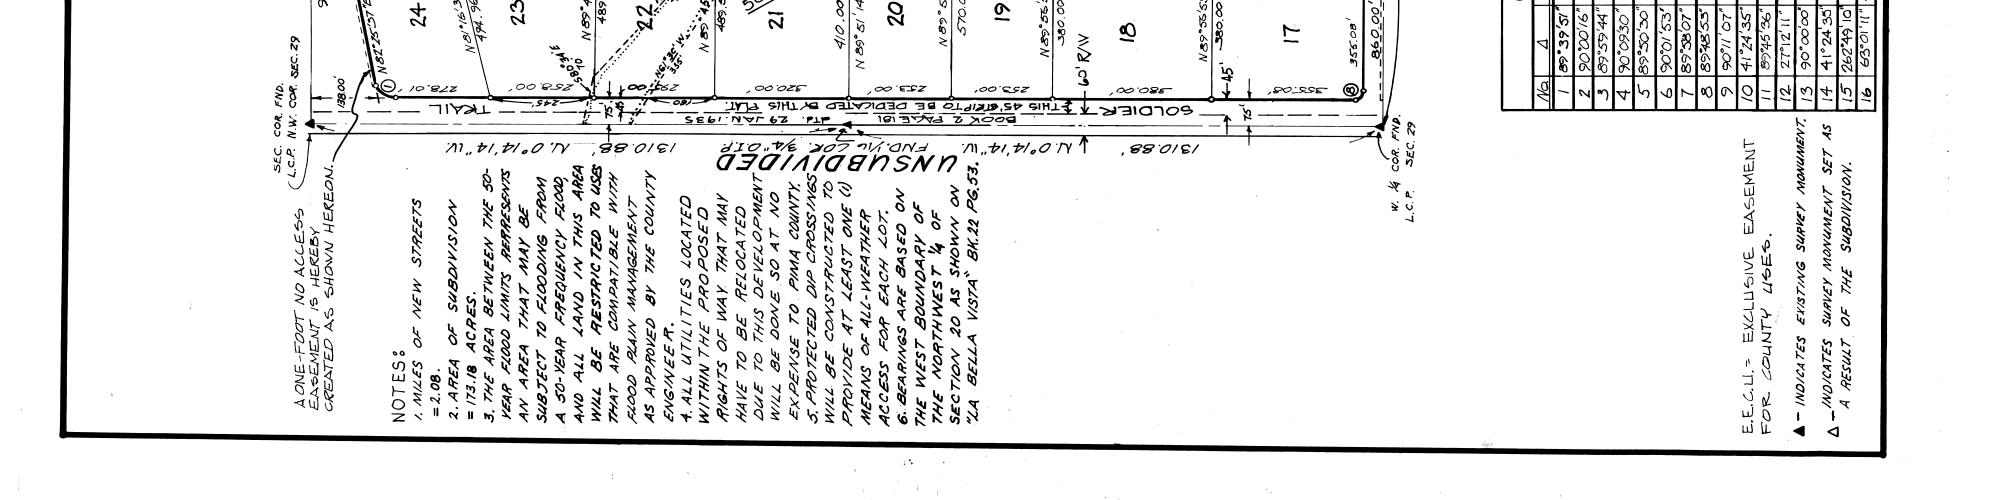 SEC. COR. FND.
L.C.P. N.W. COR. SEC. 29
A ONE-FOOT NO ACCESS
EASEMENT IS HEREBY
CREATED AS SHOWN HEREON.
NOTES:
1. MILES OF NEW STREETS
= 2.08.
2. AREA OF SUBDIVISION
= 173.18 ACRES.
3. THE AREA BETWEEN THE 50-
YEAR FLOOD LIMITS REPRESENTS
AN AREA THAT MAY BE
SUBJECT TO FLOODING FROM
A 50-YEAR FREQUENCY FLOOD,
AND ALL LAND IN THIS AREA
WILL BE RESTRICTED TO USES
THAT ARE COMPATIBLE WITH
FLOOD PLAIN MANAGEMENT
AS APPROVED BY THE COUNTY
ENGINEER.
4. ALL UTILITIES LOCATED
WITHIN THE PROPOSED
RIGHTS OF WAY THAT MAY
HAVE TO BE RELOCATED
DUE TO THIS DEVELOPMENT
WILL BE DONE SO AT NO
EXPENSE TO PIMA COUNTY.
5. PROTECTED DIP CROSSINGS
WILL BE CONSTRUCTED TO
PROVIDE AT LEAST ONE (1)
MEANS OF ALL-WEATHER
ACCESS FOR EACH LOT.
6. BEARINGS ARE BASED ON
THE WEST BOUNDARY OF
THE NORTHWEST 1/4 OF
SECTION 20 AS SHOWN ON
"LA BELLA VISTA" BK.22 PG.53.
UNSUBDIVIDED
1310.88' N. 0°14'14" W.
FND. 1/16 COR. 3/4" O.I.P.
1310.88' N. 0°14'14" W.
BOOK 2 PAGE 181 dtd. 29 JAN. 1935
SOLDIER
THIS 45' STRIP TO BE DEDICATED BY THIS PLAT.
TRAIL
138.00'
1
278.01
258.00'
245'
180'
320.00
253.00
253.00
380.00
355.08'
8
75'
45'
75'
45'
60' R/W
N 82°25'37"E
24
N 81°16'3
494.96
23
22
N61°35' W.
355'
21
410.00
N 89°51'14
20
570.0
19
380.00
18
380.00
17
355.08'
860.00'
W. 1/4 COR. FND.
L.C.P. SEC. 29
E.E.C.U. = EXCLUSIVE EASEMENT
FOR COUNTY USES.
▲ - INDICATES EXISTING SURVEY MONUMENT.
△ - INDICATES SURVEY MONUMENT SET AS
A RESULT OF THE SUBDIVISION.
No. △
1 89°39'51"
2 90°00'16"
3 89°59'44"
4 90°09'30"
5 89°50'30"
6 90°01'53"
7 89°58'07"
8 89°48'53"
9 90°11'07"
10 41°24'35"
11 89°45'36"
12 27°12'11"
13 90°00'00"
14 41°24'35"
15 262°49'10"
16 63°01'11"